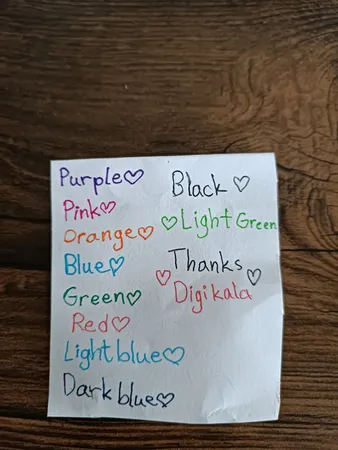 Purple♡
Pink♡
Orange♡
Blue♡
Green♡
Red♡
Lightblue♡
Darkblue♡
Black ♡
♡Light Green
Thanks♡
♡Digikala